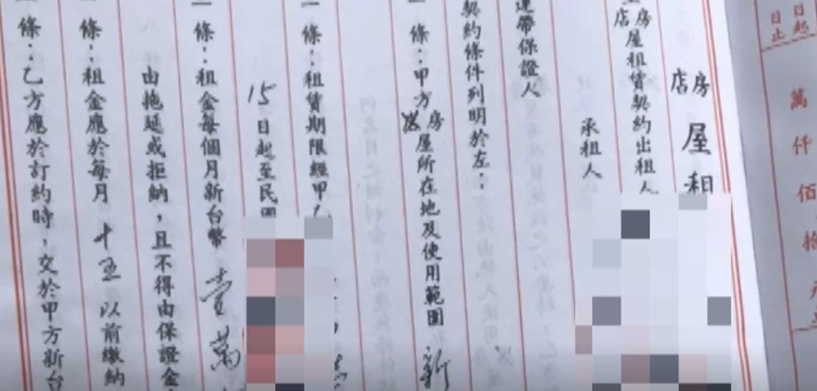 日起
日止
萬仟佰拾元
房
店
屋租
房
店
屋租賃契約出租人
承租人
連帶保證人
契約條件列明於左：
一條：甲方
房
屋所在地及使用範圍 新
一條：租賃期限經甲乙
15日起至民國
一條：租金每個月新台幣 壹萬
由拖延或拒納，且不得由保證金
條：租金應於每月 十五 以前繳納
條：乙方應於訂約時，交於甲方新台